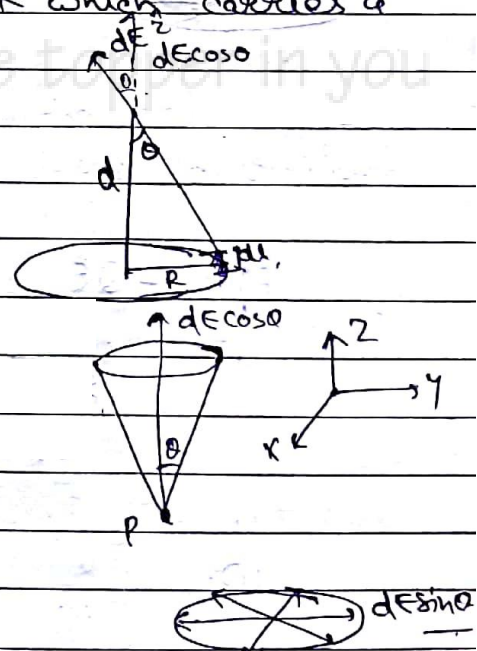 R which carries a
e topper in you
dE z
dEcosθ
θ
θ
d
dl.
R
dEcosθ
z
y
x
θ
P
dEsinθ